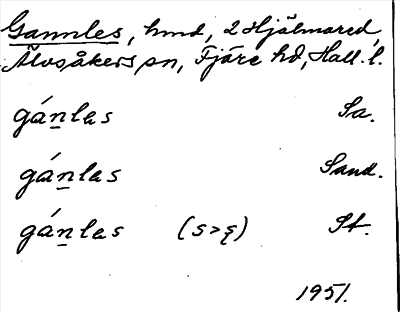 Gannles, hmd, 2 Hjälmared,
Älvsåkers sn, Fjäre hd, Hall. l.
gánḻas Sa.
gánḻas Sand.
gánḻas (s>ş) St.
1951.